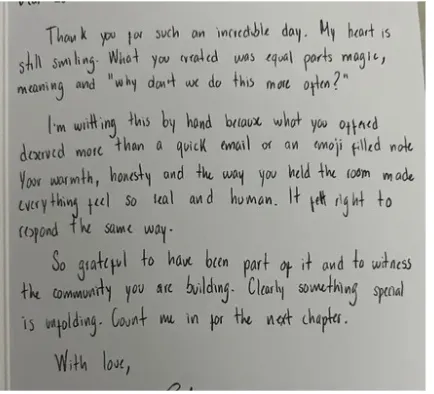 Thank you for such an incredible day. My heart is
still smiling. What you created was equal parts magic,
meaning and "why don't we do this more often?"
I'm writting this by hand because what you offered
deserved more than a quick email or an emoji filled note
Your warmth, honesty and the way you held the room made
everything feel so real and human. It felt right to
respond the same way.
So grateful to have been part of it and to witness
the community you are building. Clearly something special
is unfolding. Count me in for the next chapter.
With love,